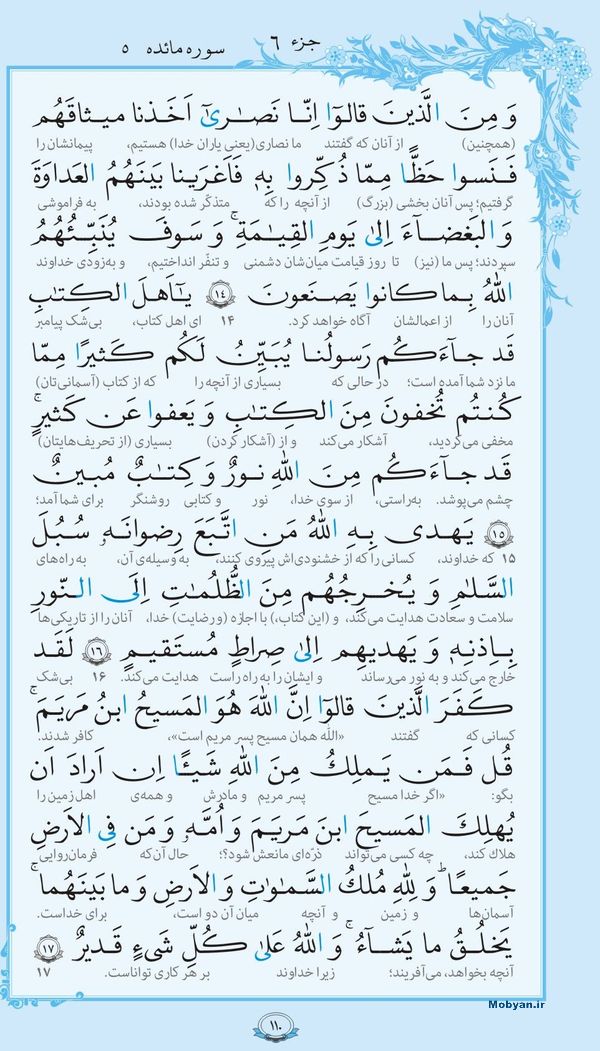 جزء ۶ سوره مائده ۵
وَ مِنَ الَّذینَ قالوا اِنّا نَصارىٰ اَخَذنا میثاقَهُم
(همچنین) از آنان که گفتند ما نصاری(یعنی یاران خدا) هستیم، پیمانشان را
فَنَسوا حَظًّا مِمّا ذُکِّروا بِه فَاَغرَینا بَینَهُمُ العَداوَةَ
گرفتیم؛ پس آنان بخشی (بزرگ) از آنچه را که متذکّر شده بودند، به فراموشی
وَ البَغضاءَ اِلیٰ یَومِ القِیامَةِ وَ سَوفَ یُنَبِّئُهُمُ
سپردند؛ پس ما (نیز) تا روز قیامت میان‌شان دشمنی و تنفّر انداختیم، و به‌زودی خداوند
اللهُ بِما کانوا یَصنَعونَ ۱۴ یٰاَهلَ الکِتٰبِ
آنان را از اعمالشان آگاه خواهد کرد. ۱۴ ای اهل کتاب، بی‌شک پیامبر
قَد جاءَکُم رَسولُنا یُبَیِّنُ لَکُم کَثیرًا مِمّا
ما نزد شما آمده است؛ در حالی که بسیاری از آنچه را که از کتاب (آسمانی‌تان)
کُنتُم تُخفونَ مِنَ الکِتٰبِ وَ یَعفوا عَن کَثیرٍ
مخفی می‌کردید، آشکار می‌کند و از (آشکار کردن) بسیاری (از تحریف‌هایتان)
قَد جاءَکُم مِنَ اللهِ نورٌ وَ کِتٰبٌ مُبینٌ
چشم می‌پوشد. به‌راستی، از سوی خدا، نور و کتابی روشنگر برای شما آمد؛
۱۵ یَهدی بِهِ اللهُ مَنِ اتَّبَعَ رِضوانَه سُبُلَ
۱۵ که خداوند، کسانی را که از خشنودی‌اش پیروی کنند، به وسیله‌ی آن، به راه‌های
السَّلٰمِ وَ یُخرِجُهُم مِنَ الظُّلُمٰتِ اِلَى النّورِ
سلامت و سعادت هدایت می‌کند، و (این کتاب،) با اجازه (ورضایت) خدا، آنان را از تاریکی‌ها
بِاِذنِه وَ یَهدیهِم اِلیٰ صِراطٍ مُستَقیمٍ ۱۶ لَقَد
خارج می‌کند و به نور می‌رساند و ایشان را به راه راست هدایت می‌کند. ۱۶ بی‌شک
کَفَرَ الَّذینَ قالوا اِنَّ اللهَ هُوَ المَسیحُ ابنُ مَریَمَ
کسانی که گفتند «الله همان مسیح پسر مریم است»، کافر شدند.
قُل فَمَن یَملِکُ مِنَ اللهِ شَیئًا اِن اَرادَ اَن
بگو: «اگر خدا مسیح پسر مریم و مادرش و همه‌ی اهل زمین را
یُهلِکَ المَسیحَ ابنَ مَریَمَ وَ اُمَّه وَ مَن فِی الاَرضِ
هلاک کند، چه کسی می‌تواند ذرّه‌ای مانعش شود؟؛ حال آن‌که فرمان‌روایی
جَمیعًا وَ لِلّٰهِ مُلکُ السَّمٰوٰتِ وَ الاَرضِ وَ ما بَینَهُما
آسمان‌ها و زمین و آنچه میان آن دو است، برای خداست.
یَخلُقُ ما یَشاءُ وَ اللهُ عَلیٰ کُلِّ شَیءٍ قَدیرٌ ۱۷
آنچه بخواهد، می‌آفریند؛ زیرا خداوند بر هر کاری تواناست. ۱۷
Mobyan.ir
۱۱۰